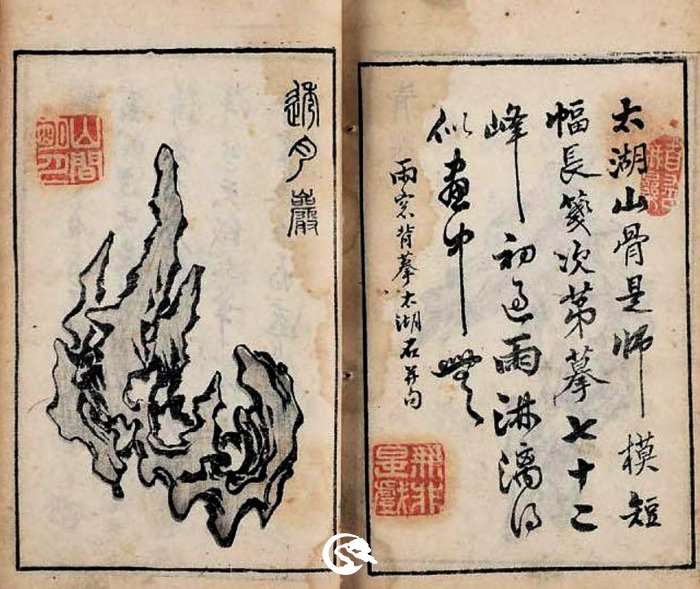 太湖山骨是師模短
幅長箋次第摹七十二
峰初過雨淋漓得
似畫中無
雨窗背摹太湖石并句
無非
是戲
透月巖
山間